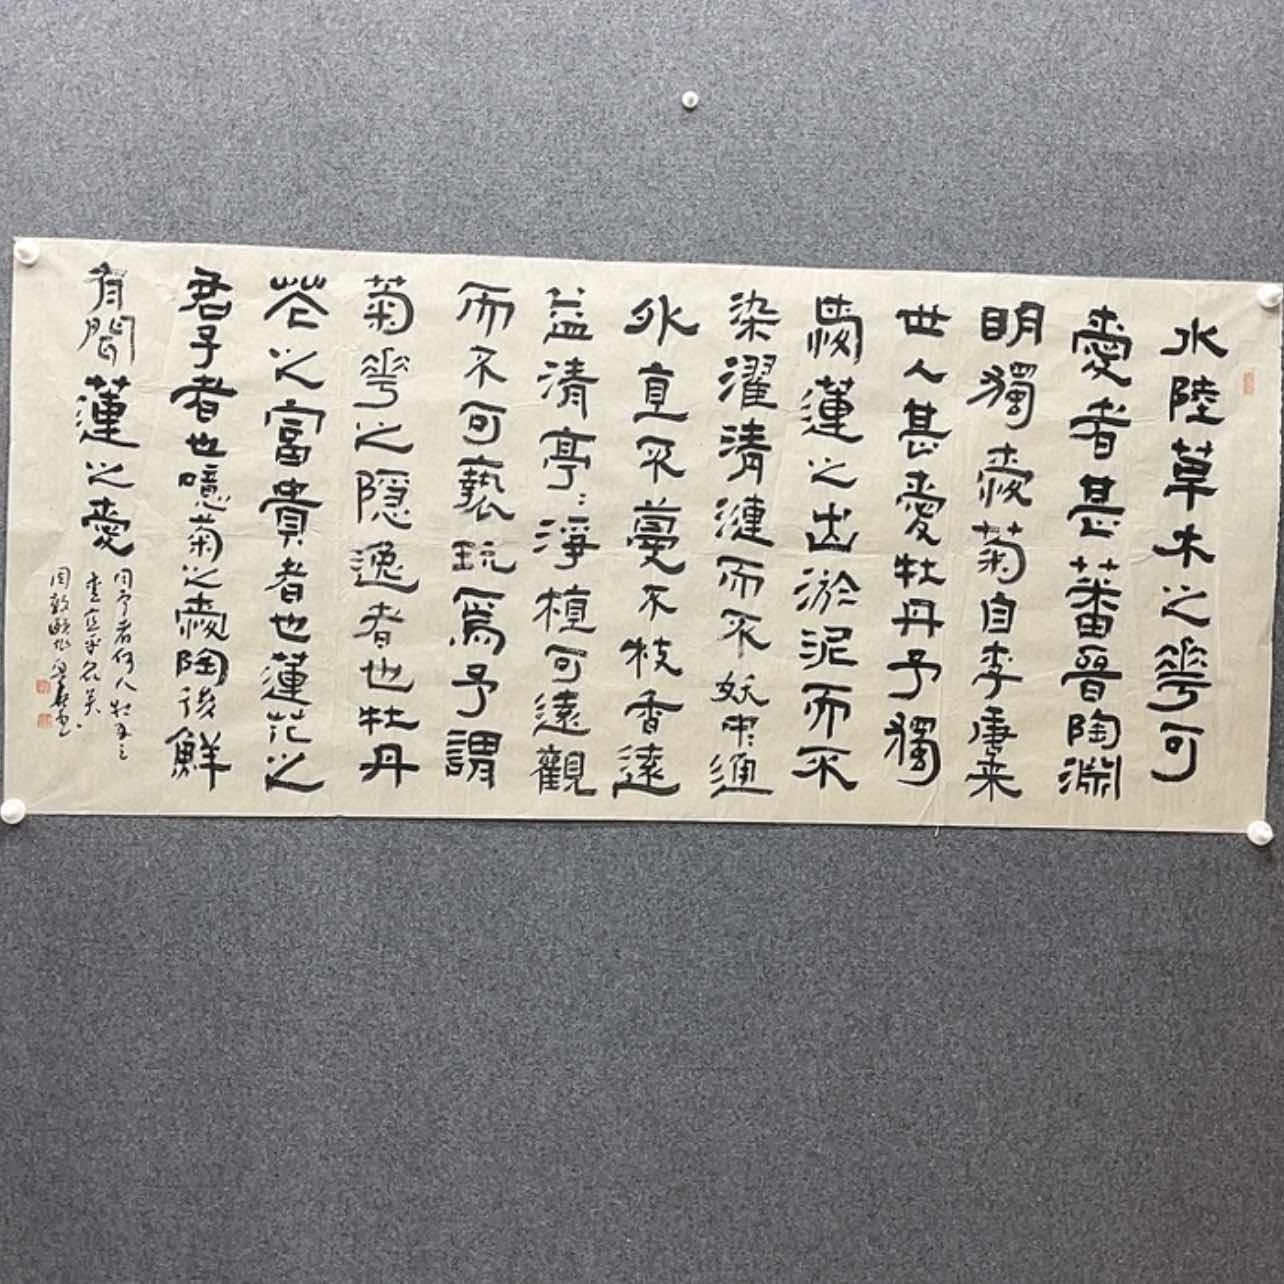 水陸草木之華可
愛者甚蕃晉陶淵
明獨愛菊自李唐来
世人甚愛牡丹予獨
愛蓮之出淤泥而不
染濯清漣而不妖中通
外直不蔓不枝香遠
益清亭亭淨植可遠觀
而不可褻玩焉予謂
菊華之隐逸者也牡丹
花之富貴者也蓮花之
君子者也噫菊之愛陶後鮮
有聞蓮之愛
同予者何人牡丹之
愛宜乎众矣
周敦頤